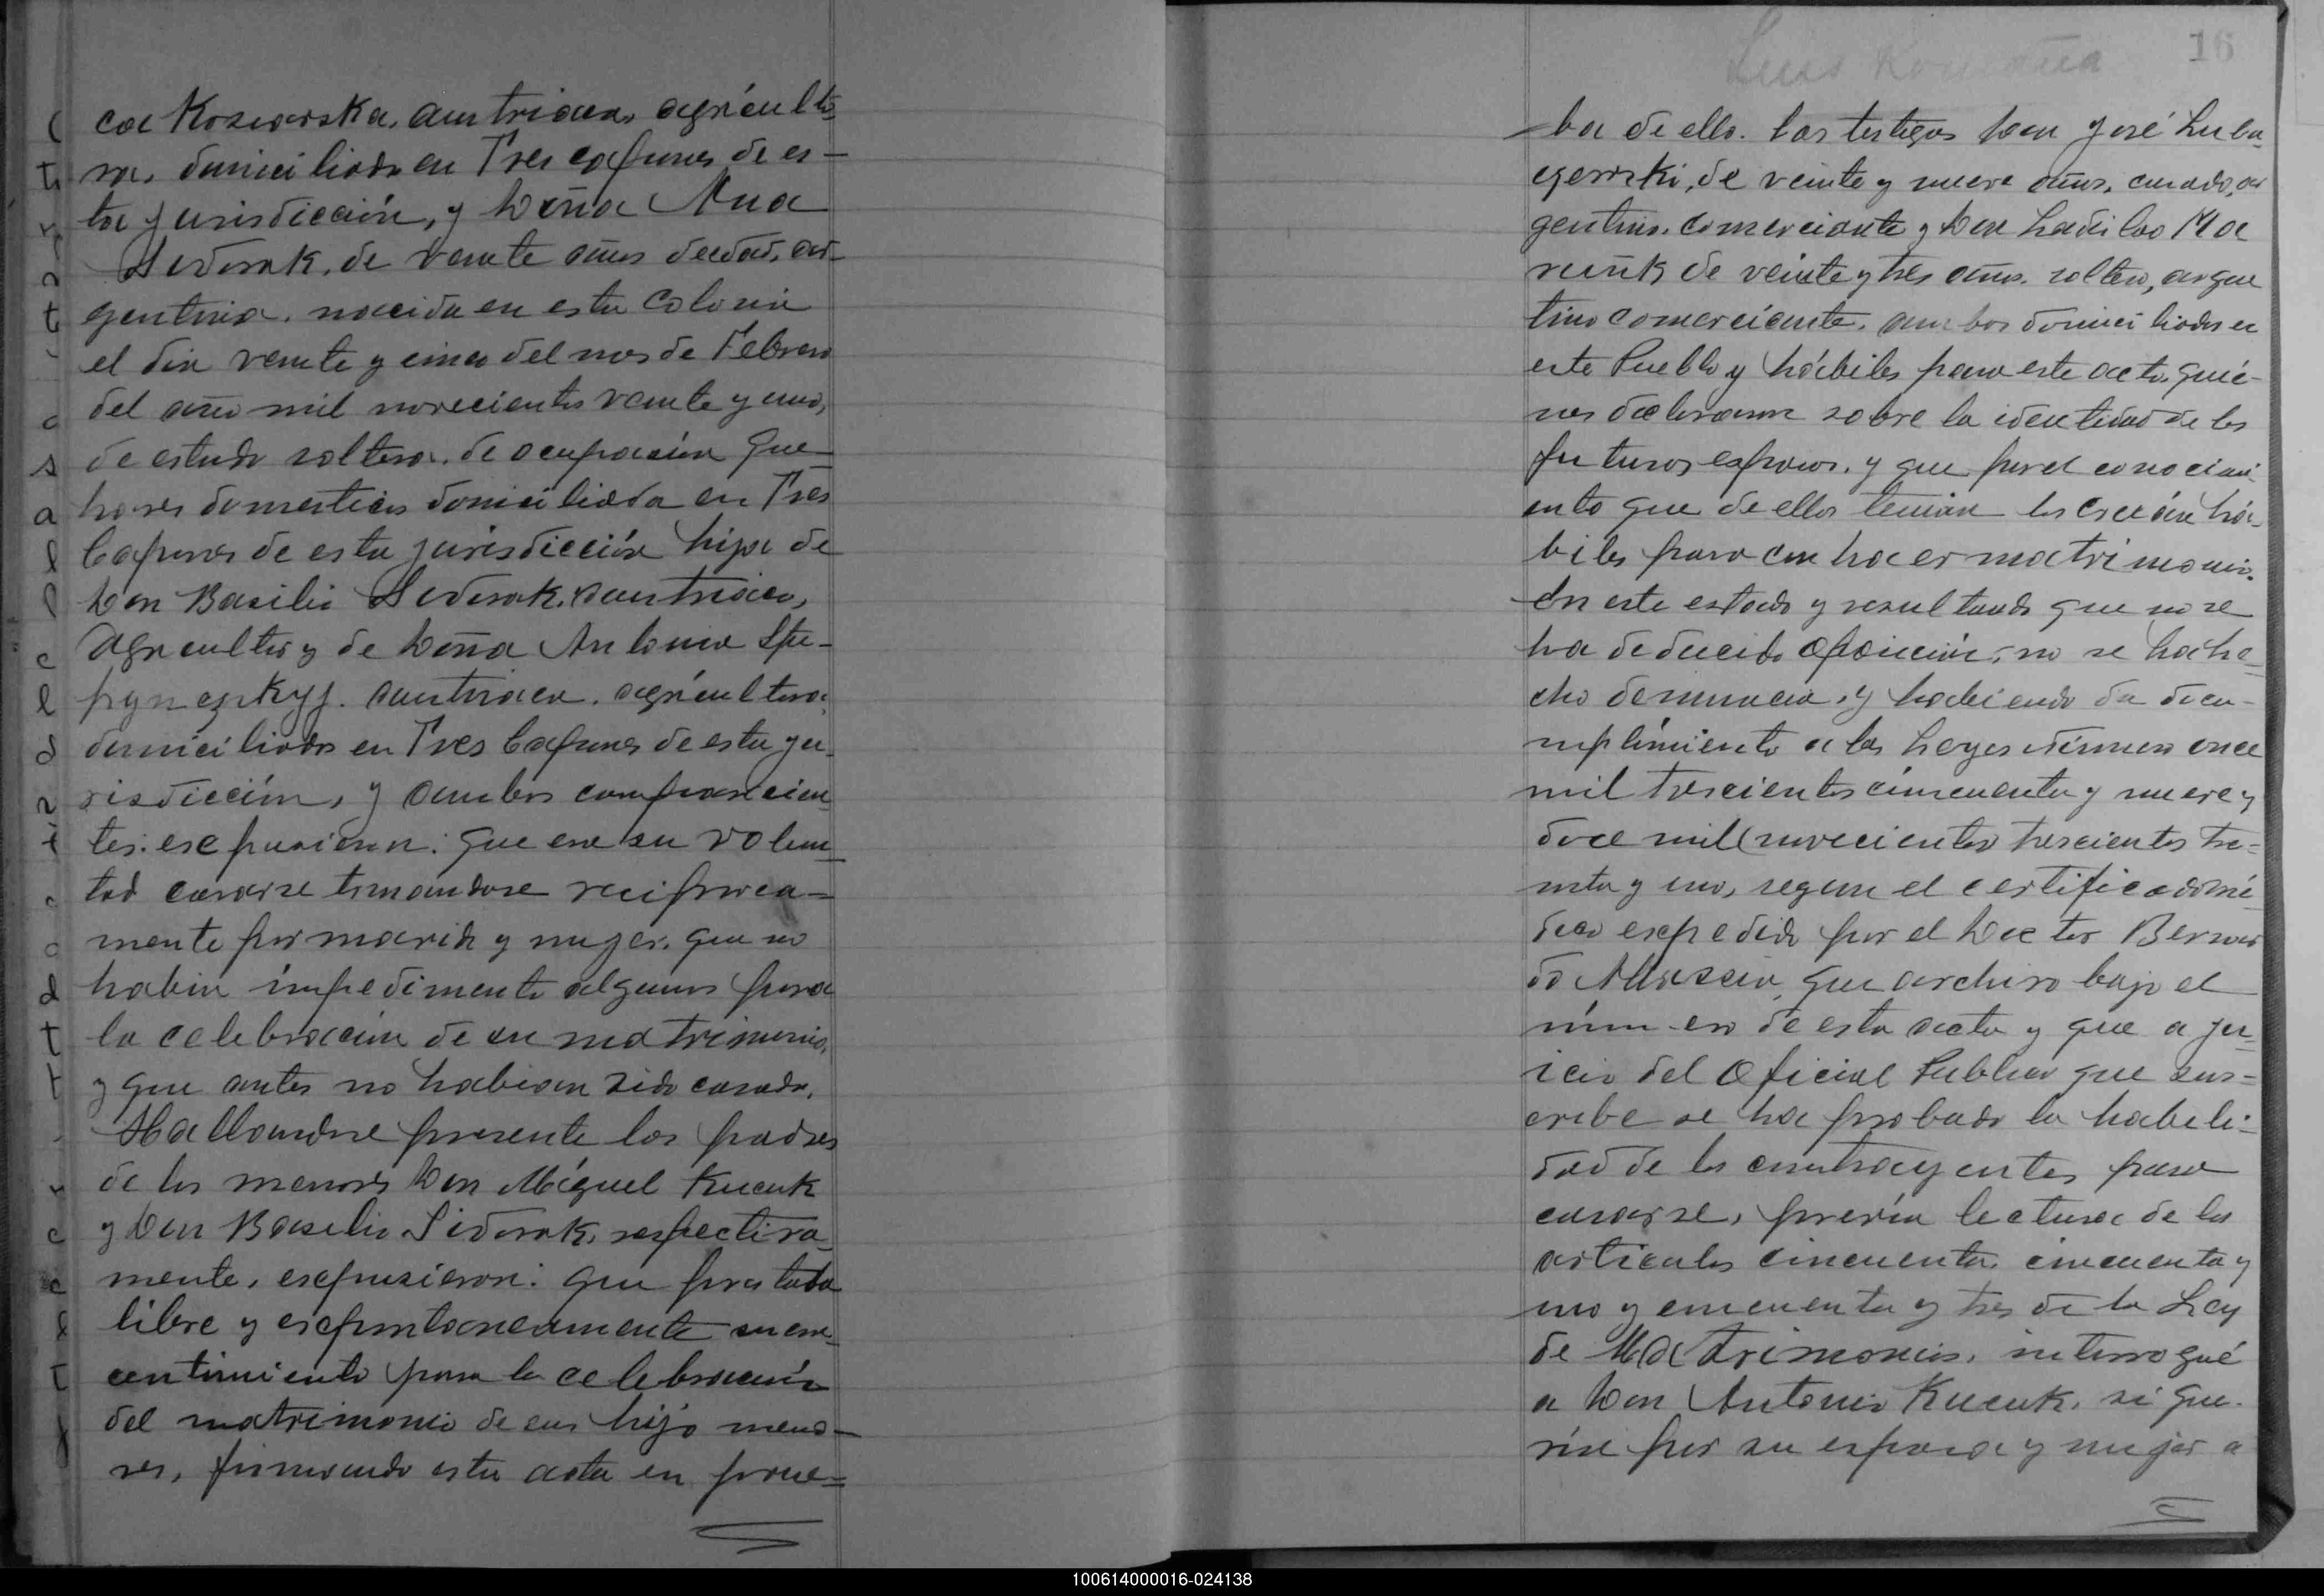 ca Kosiarska, austriaca, agriculto
ra, domiciliados en Tres Capones de es-
ta jurisdicción, y Doña Ana
Sidorak, de veinte años de edad, ar-
gentina, nacida en esta Colonia
el dia veinte y cinco del mes de Febrero
del año mil novecientos veinte y uno,
de estado soltera, de ocupación que-
haceres domesticos domiciliada en Tres
Capones de esta jurisdicción hija de
Don Basilio Sidorak, austriaco,
agricultor y de Doña Antonia
austriaca, agricultora,
domiciliados en Tres Capones de esta ju-
risdicción, y ambos comparecien
tes: expusieron: que era su volun
tad casarse tomandose reciproca=
mente por marido y mujer, que no
habia impedimento alguno para
la celebración de su matrimonio,
y que antes no habian sido casados.
Hallandose presente los padres
de los menores Don Miguel Kucuk
y Don Basilio Sidorak, respectiva-
mente, expusieron: que prestaba
libre y expontaneamente su con-
centimiento para la celebración
del matrimonio de sus hijo meno-
res, firmando esta acta en prue=
16
=ba de ello. Los testigos Don José Luba
de veinte y nueve años, casado, ar
gentino, comerciante y Don Ladislao Ma
ruñk de veinte y tres años, soltero, argen
tino comerciante, ambos domiciliados en
este Pueblo y hábiles para este acto, quie-
nes declararon sobre la identidad de los
futuros esposos, y que por el conocimi-
ento que de ellos tenian los creían há-
biles para contraer matrimonio.
En este estado y resultando que no se
ha deducido oposición, no se ha he-
cho denuncia, y habiendo da docu-
mplimiento a las Leyes número once
mil trescientos cincuenta y nueve y
doce mil (novecientos) trescientos tre=
inta y uno, segun el certificado mé
dico expedido por el Doctor Bernar
do que archivo bajo el
número de esta acta y que a ju-
icio del Oficial Publico que sus=
cribe se ha probado la habili=
dad de los contrayentes para
casarse, previa lectura de los
articulos cincuenta, cincuenta y
uno y cincuenta y tres de la Ley
de Matrimonio, interrogué
a Don Antonio Kucuk, si que-
ría por su esposa y mujer a
100614000016-024138